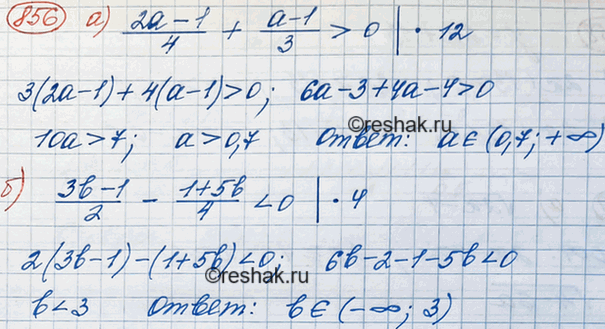 856 а) (2a-1)/4 + (a-1)/3 > 0 | · 12
3(2a-1)+4(a-1)>0; 6a-3+4a-4>0
10a>7; a>0,7 Ответ: a∈(0,7; +∞)
©reshak.ru
б) (3b-1)/2 - (1+5b)/4 < 0 | · 4
2(3b-1)-(1+5b)<0; 6b-2-1-5b<0
©reshak.ru
b<3 Ответ: b∈(-∞; 3)